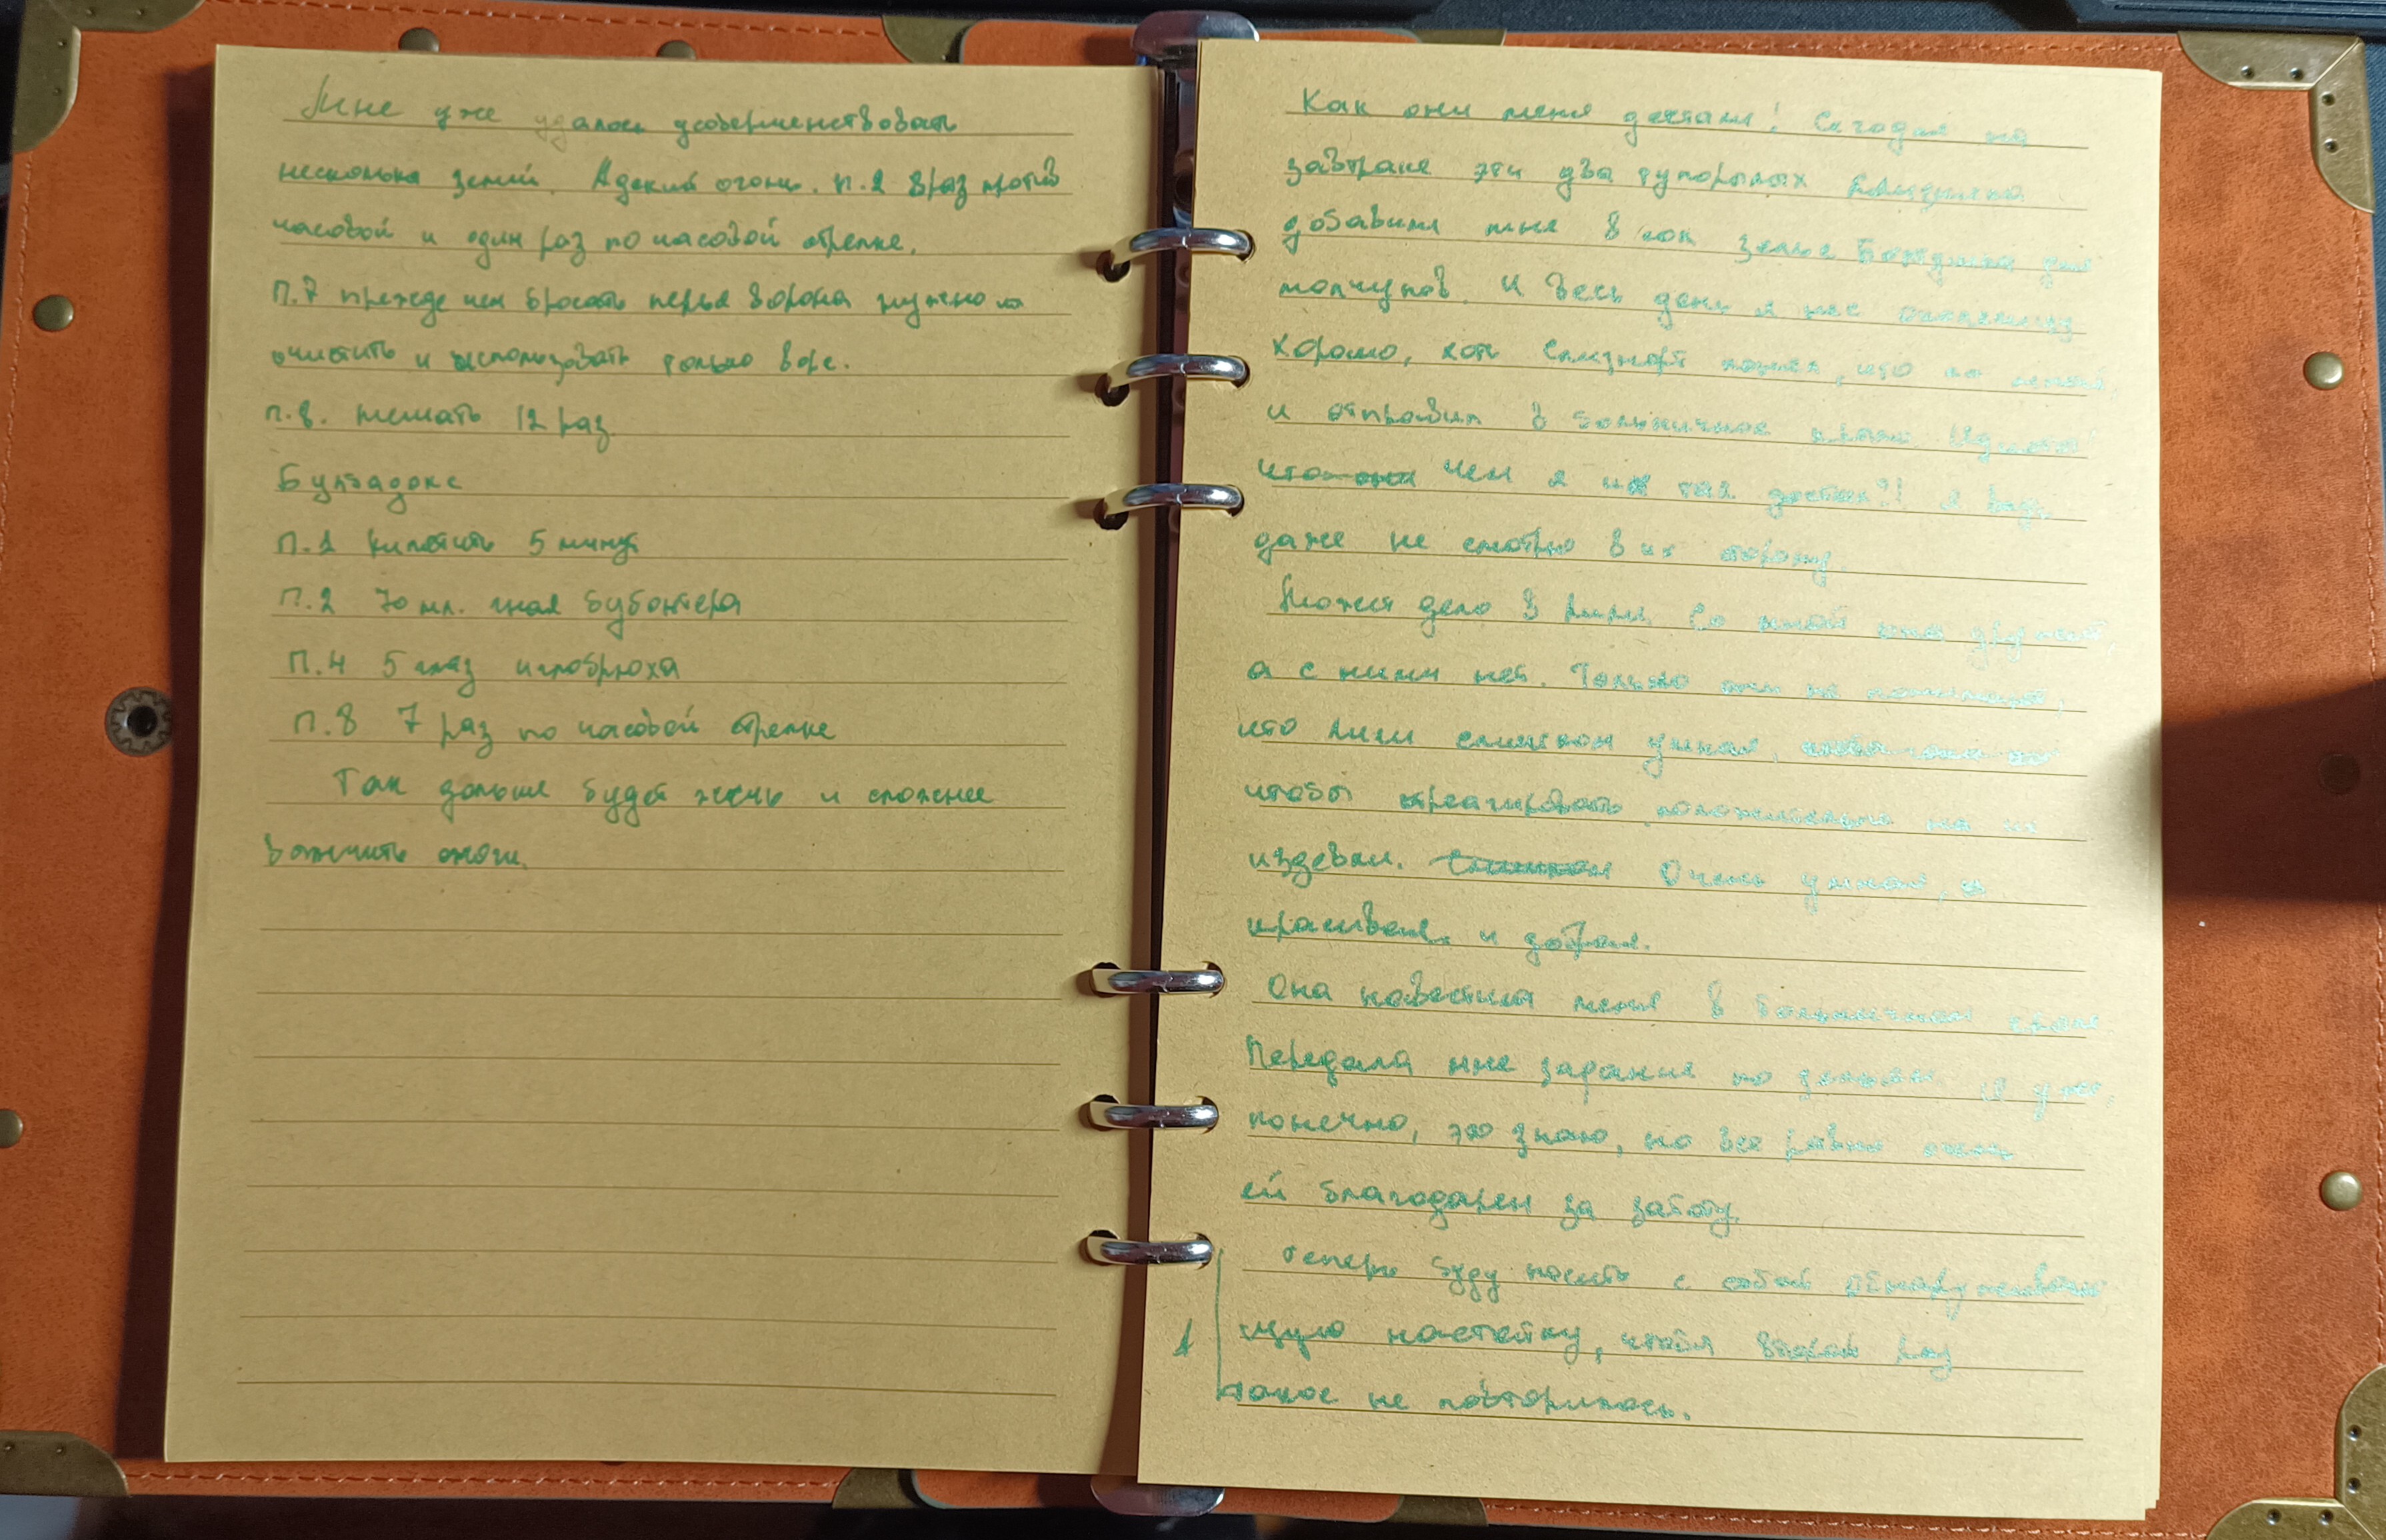 Мне уже удалось усовершенствовать
несколько зелий. Адский огонь. п.2 8 раз против
часовой и один раз по часовой стрелке.
П.7 прежде чем бросать перья ворона нужно их
очистить и использовать только ворс.
п.8. мешать 12 раз
Бултадокс
П.1 кипятить 5 минут
П.2 70 мл. гноя бубонтера
П.4 5 глаз иглобрюха
П.8 7 раз по часовой стрелке
Так дольше будет жечь и сложнее
вылечить ожоги.
Как они меня достали! Сегодня на
завтраке эти два тупорылых
добавили мне в сок зелье Болтушка для
молчунов. И весь день я нёс околесицу
хорошо, хоть Слизнорт понял, что
и отправил в больничное крыло. Идиоты!
что они Чем я их так достал?! Я ведь
даже не смотрю в их сторону.
Может дело в Лили. Со мной она дружит,
а с ними нет. Только они не понимают,
что Лили слишком умная,
чтобы реагировать положительно на их
издевки. Слишком Очень умная, и
красивая. и добрая.
Она навестила меня в больничном крыле
Передала мне задание по зельям. Я уже,
конечно, это знаю, но все равно очень
ей благодарен за заботу.
Теперь буду носить с собой обнаруживаю
щую настойку, чтобы второй раз
такое не повторилось.